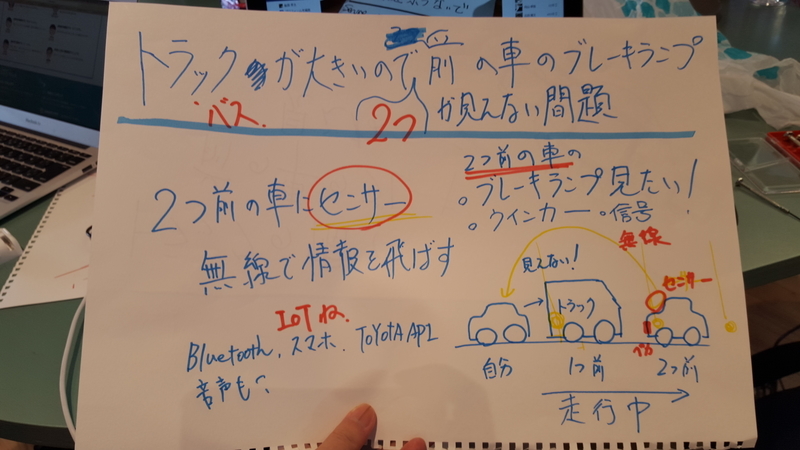 トラックが大きいので前の車のブレーキランプ
バス
2つ
が見えない問題
2つ前の車に センサー
無線で情報を飛ばす
IoTね
Bluetooth、スマホ、TOYOTA API
音声も?
2つ前の車の
。ブレーキランプ見たい!
。ウインカー 。信号
無線
見えない!
センサー
トラック
ぺか
自分
1つ前
2つ前
走行中